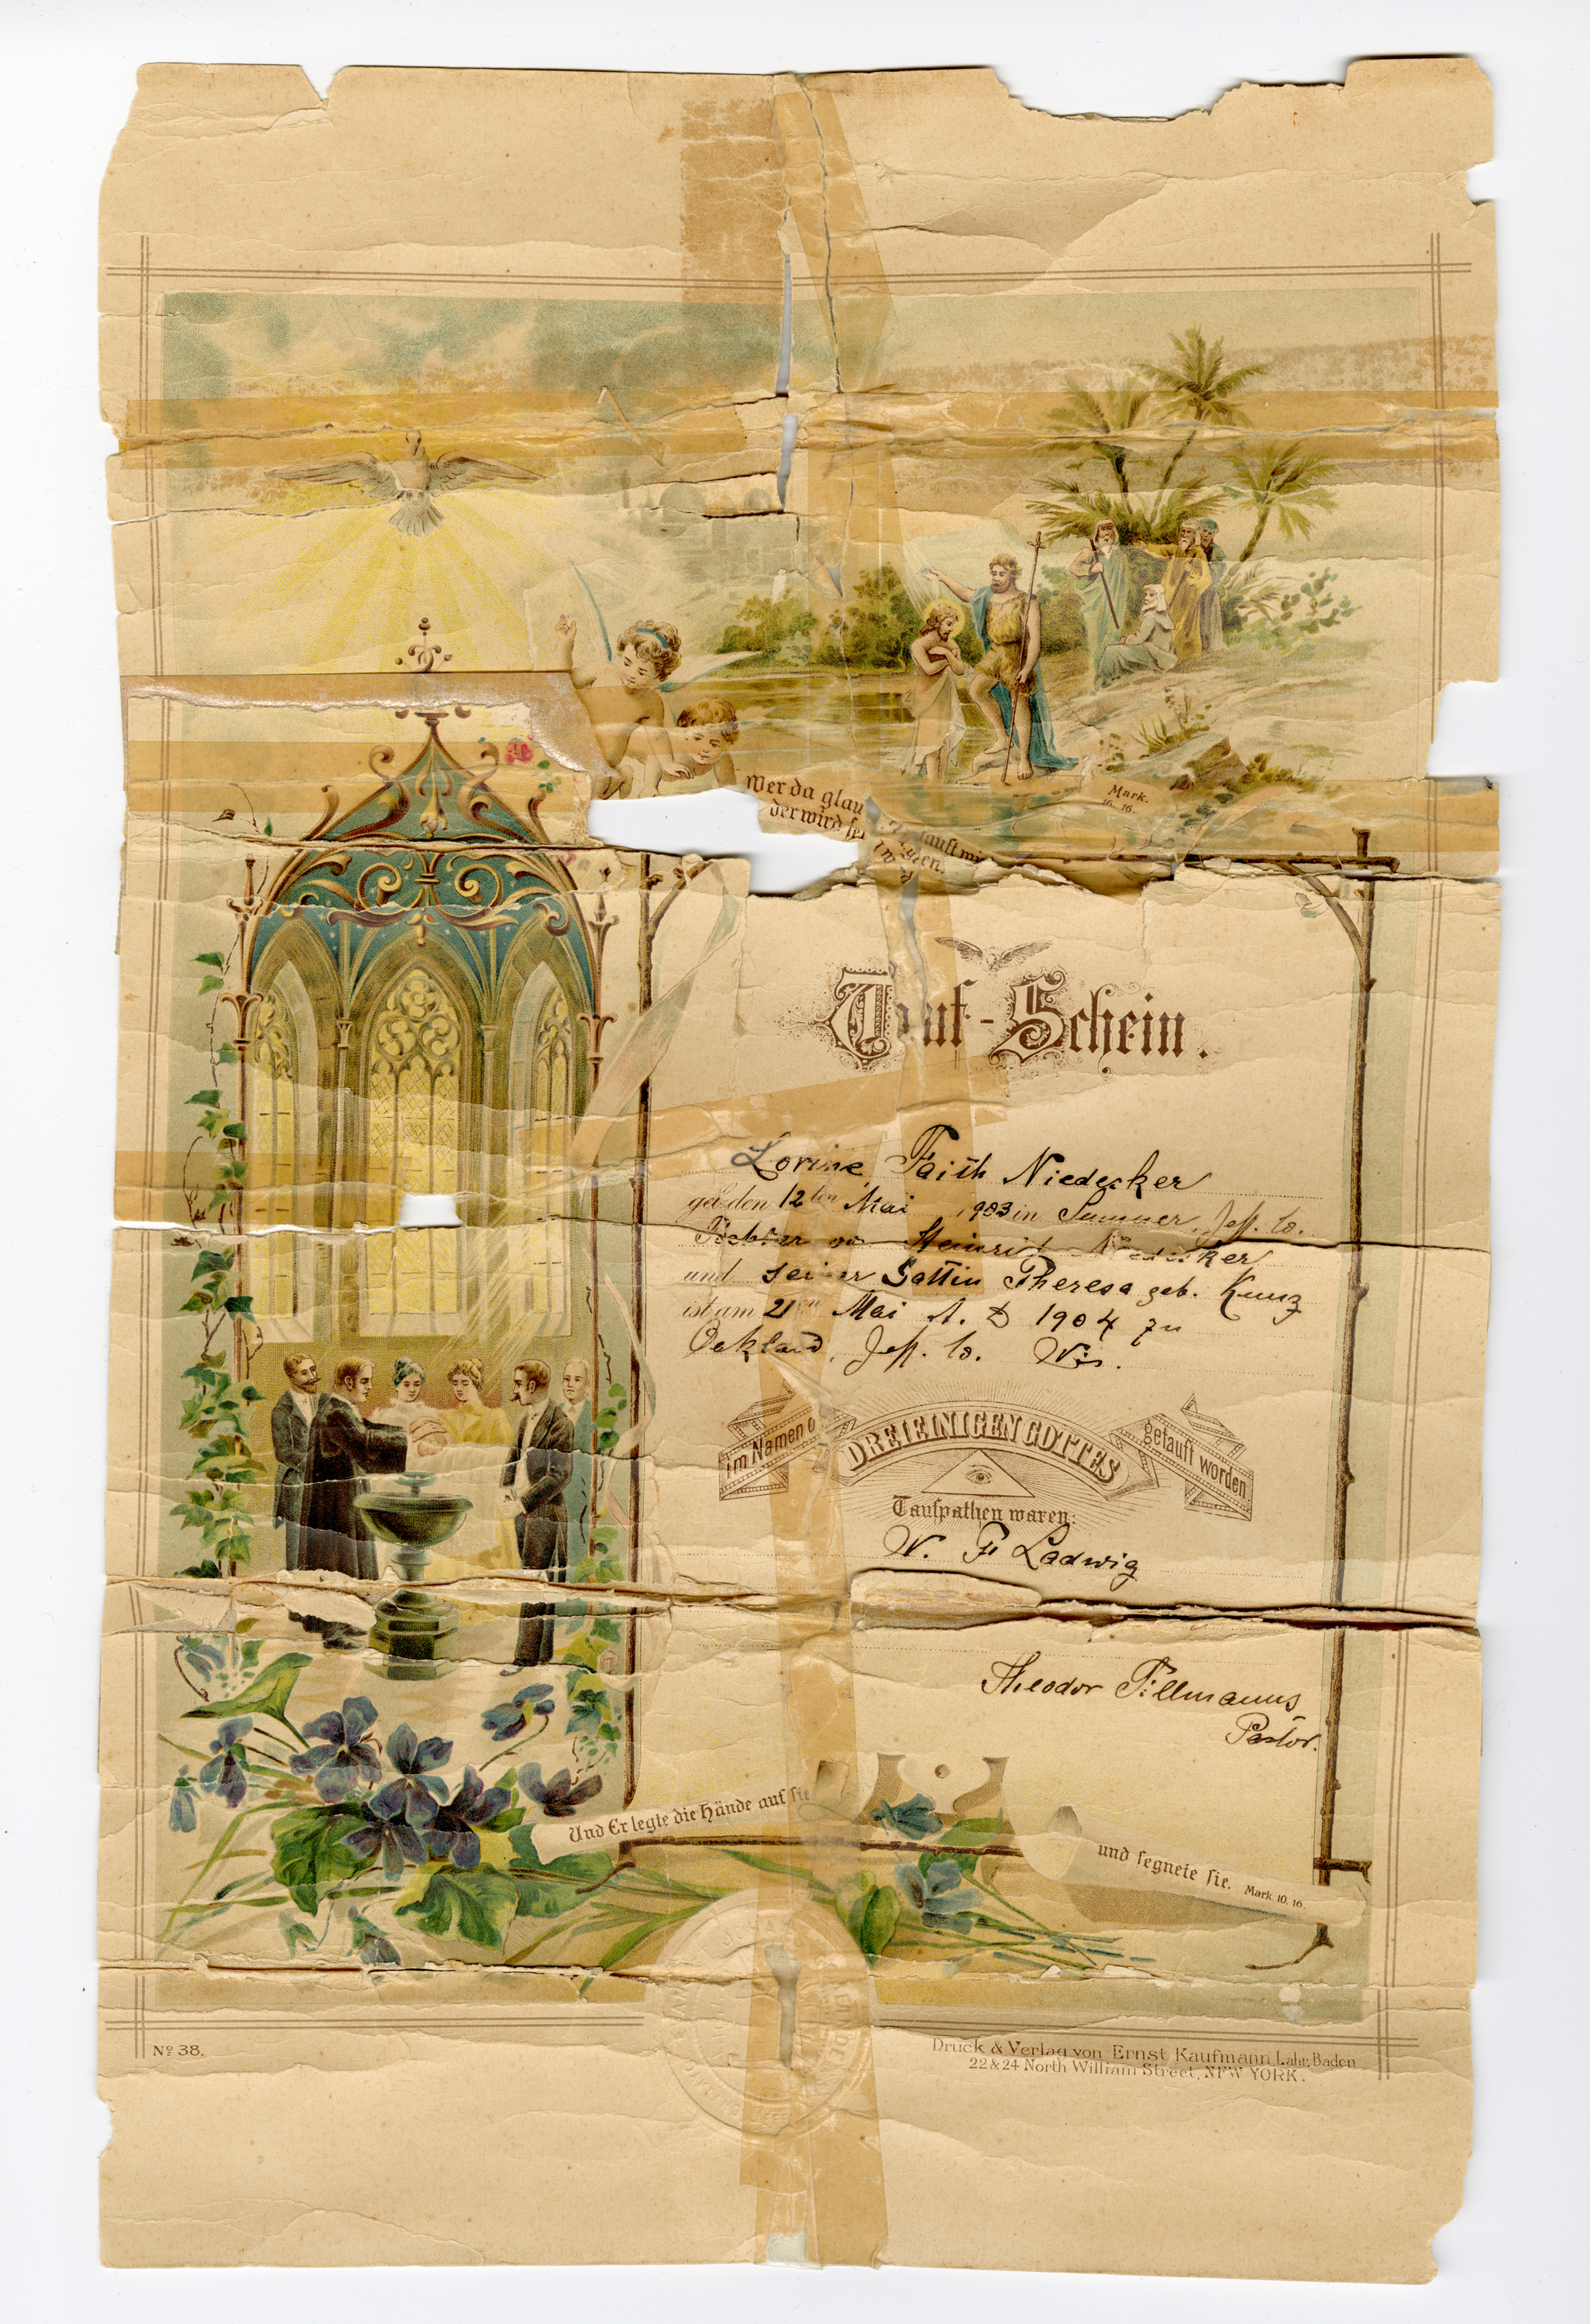 Wer da glau tauft wi
der wird se
Mark.
16. 16.
Tauf-Schein.
Lorine Faith Niedecker
geb. den 12ten Mai 1903 in Sumner, Jeff. Co.
Tochter von Heinrich Niedecker
und seiner Gattin Theresa geb. Kunz
ist am 21ten Mai A. D 1904 zu
Oakland, Jeff. Co. Wis.
im Namen d
DREIEINIGEN GOTTES
getauft worden
Taufpathen waren:
W. F Ladwig
Theodor Tillmanns
Pastor.
Und Er legte die Hände auf sie
und segnete sie. Mark 10. 16.
No 38.
Druck & Verlag von Ernst Kaufmann, Lahr, Baden
22 & 24 North William Street, NEW YORK.